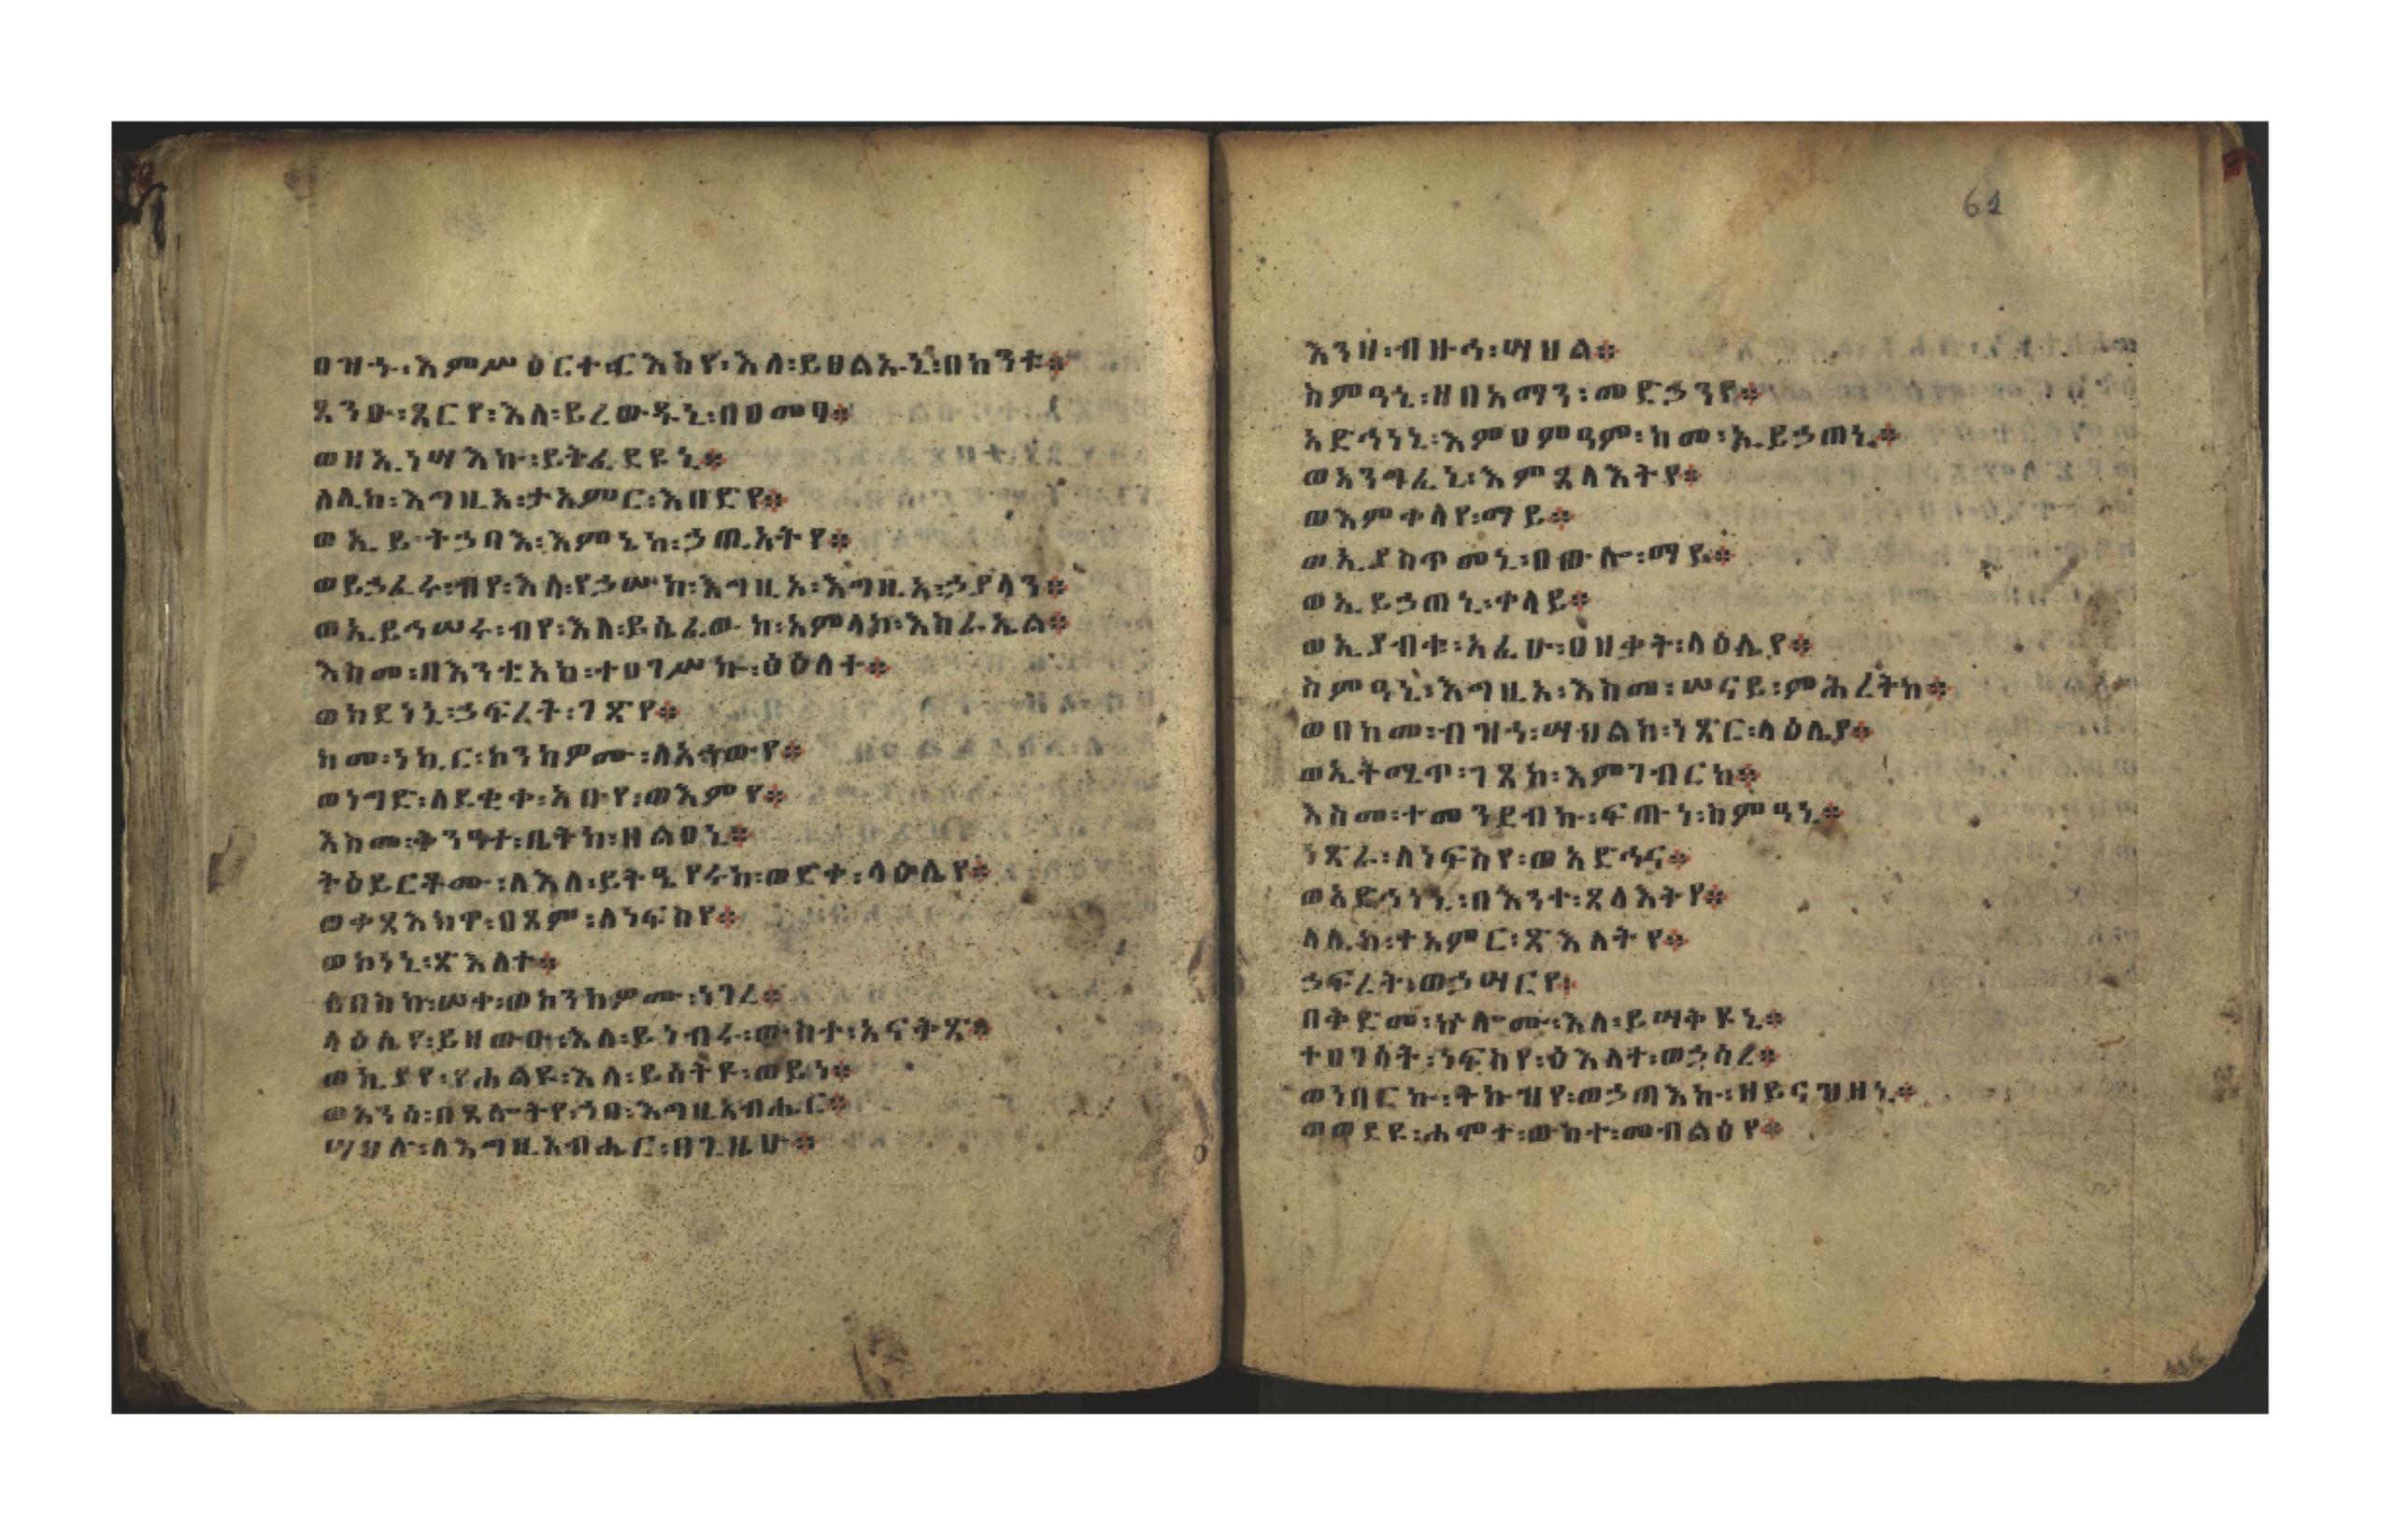 በዝኁ፡እምሥዕርተ፡ርእስየ፡እለ፡ይፀልኡኒ፡በከንቱ።
ጸንዑ፡ጸርየ፡እለ፡ይረውዱኒ፡በዐመፃ።
ወዘኢነሣእኩ፡ይትፈደዩኒ።
ለሊከ፡እግዚኦ፡ታአምር፡እበድየ።
ወኢይትኃባእ፡እምኔከ፡ኃጢአትየ።
ወይኃፈሩ፡ብየ፡እለ፡የኃሡከ፡እግዚኦ፡እግዚአ፡ኃያላን።
ወኢይኅሠሩ፡ብየ፡እለ፡ይሴፈውከ፡አምላከ፡እስራኤል።
እስመ፡በእንቲአከ፡ተዐገሥኩ፡ፅዕለተ።
ወከደነኒ፡ኃፍረት፡ገጽየ።
ከመ፡ነኪር፡ኮንክዎሙ፡ለአኃውየ።
ወነግድ፡ለደቂቀ፡አቡየ፡ወእምየ።
እስመ፡ቅንዓተ፡ቤትከ፡በልዐኒ።
ትዕይርቶሙ፡ለእለ፡ይትዔየሩከ፡ወድቀ፡ላዕሌየ።
ወቀጻእክዋ፡በጾም፡ለነፍስየ።
ወኮነኒ፡ጽእለተ።
ለበስኩ፡ሠቀ፡ወኮንክዎሙ፡ነገረ።
ላዕሌየ፡ይዘውዑ፡እለ፡ይነብሩ፡ውስተ፡አናቅጽ።
ወኪያየ፡የሐልዩ፡እለ፡ይሰትዩ፡ወይነ።
ወአንሰ፡በጸሎትየ፡ኀበ፡እግዚአብሔር።
ሣህሉ፡ለእግዚአብሔር፡በጊዜሁ።
እንዘ፡ብዙኅ፡ሣህል።
ስምዓኒ፡ዘበአማን፡መድኃንየ።
አድኅነኒ፡እምዐምዓም፡ከመ፡ኢይኃጠኒ።
ወአንግፈኒ፡እምጸላእትየ።
ወእምቀላየ፡ማይ።
ወኢያስጥመኒ፡በውሎ፡ማይ።
ወኢይኃጠኒ፡ቀላይ።
ወኢያብቁ፡አፈሁ፡ዐዘቃት፡ላዕሌየ።
ስምዓኒ፡እግዚኦ፡እስመ፡ሠናይ፡ምሕረትከ።
ወበከመ፡ብዝኀ፡ሣህልከ፡ነጽር፡ላዕሌየ።
ወኢትሚጥ፡ገጸከ፡እምገብርከ።
እስመ፡ተመንደብኩ፡ፍጡነ፡ስምዓኒ።
ነጽራ፡ለነፍስየ፡ወአድኅና።
ወአድኅነኒ፡በእንተ፡ጸላእትየ።
ለሊከ፡ተአምር፡ጽእለትየ።
ኃፍረት፡ወኃሣርየ፡
በቅድመ፡ኵሎሙ፡እለ፡ይሣቅዩኒ።
ተዐገሰት፡ነፍስየ፡ፅእለት፡ወኃሳረ።
ወነበርኩ፡ትኩዝየ፡ወኃጣእኩ፡ዘይናዝዘኒ።
ወወደዩ፡ሐሞተ፡ውስተ፡መብልዕየ።